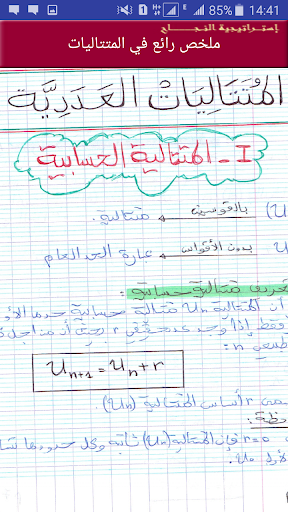 85% 14:41
إستراتيجية النجاح
ملخص رائع في المتتاليات
المُتَتَالِيَاتُ العَدَدِيَّة
I - المتتالية الحسابية
بالأقواس متتالية.
بدون الأقواس عبارة الحد العام
تعريف متتالية حسابية :
أن المتتالية Un متتالية حسابية حدها الأو
وفقط إذا وجد عدد حقيقي r بحيث أن من أجل ك
طبيعي n :
Un+1 = Un + r
r أساس المتتالية (Un).
r = 0 فإن المتتالية (Un) ثابتة وكل حدودها تسا